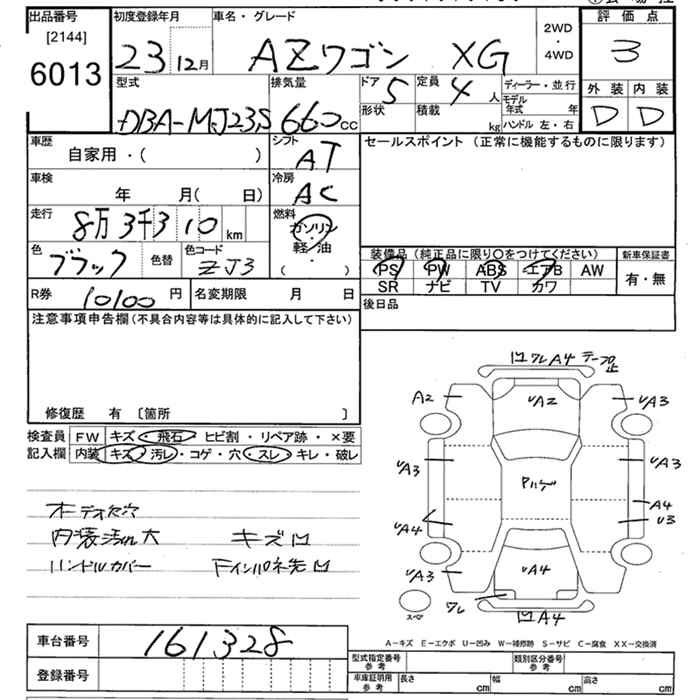 出品番号 初度登録年月 車名・グレード 評価点
[2144]
6013
23 12月 AZワゴン XG 2WD・4WD 3
外装 内装
D D
型式 排気量 ドア 定員 ディーラー・並行
DBA-MJ23S 660cc 5 4人 モデル年式 年
形状 積載 kg ハンドル 左・右
車歴 シフト セールスポイント (正常に機能するものに限ります)
自家用・( ) AT
車検 冷房
年 月( 日) AC
走行 燃料
8万3千310km ガソリン・軽油・( )
色 色替 色コード
ブラック ZJ3
装備品 (純正品に限り○をつけてください) 新車保証書
PS PW ABS エアB AW 有・無
SR ナビ TV カワ
R券 10100円 名変期限 月 日
後日品
注意事項申告欄 (不具合内容等は具体的に記入して下さい)
修復歴 有 〔箇所 〕
検査員 FW キズ・飛石・ヒビ割・リペア跡・×要
記入欄 内装 キズ・汚レ・コゲ・穴・スレ・キレ・破レ
オーディオ穴
内装汚れ大 キズ凹
ハンドルカバー Fインパネ先凹
凹 ワレ A4 テープ止
A2 UA2 UA3
UA3 Pハゲ UA3
A4
UA4 U3
UA3 UA4
ワレ 凹A4
スペア
A-キズ E-エクボ U-凹み W-補修跡 S-サビ C-腐食 XX-交換済
車台番号 161328
登録番号
型式指定番号 参考 類別区分番号 参考
車庫証明用 参考 長さ cm 幅 cm 高さ cm